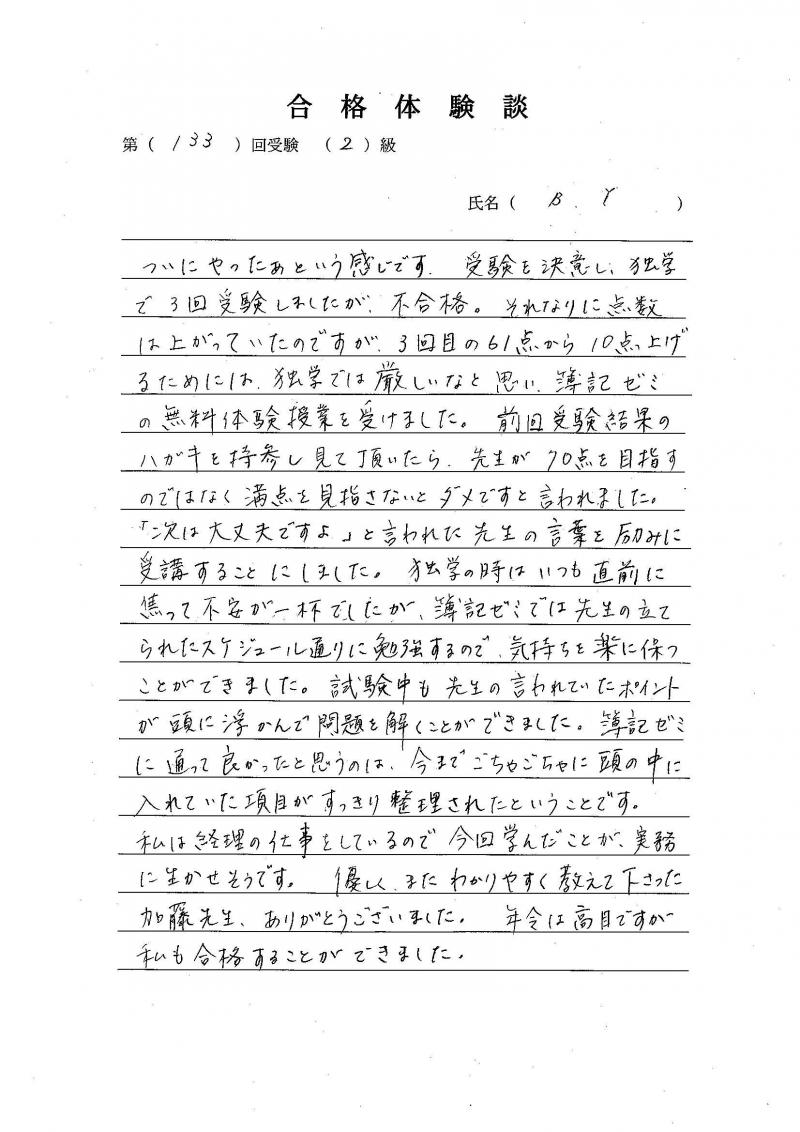 合格体験談
第（133）回受験 （2）級
氏名（ B.Y ）
ついにやったぁという感じです. 受験を決意し、独学
で3回受験しましたが、不合格。それなりに点数
は上がっていたのですが、3回目の61点から10点上げ
るためには、独学では厳しいなと思い、簿記ゼミ
の無料体験授業を受けました。前回受験結果の
ハガキを持参し見て頂いたら、先生が70点を目指す
のではなく満点を見指さないとダメですと言われました。
「次は大丈夫ですよ」と言われた先生の言葉を励みに
受講することにしました。独学の時はいつも直前に
焦って不安が一杯でしたが、簿記ゼミでは先生の立て
られたスケジュール通りに勉強するので、気持ちを楽に保つ
ことができました。試験中も先生の言われていたポイント
が頭に浮かんで問題を解くことができました。簿記ゼミ
に通って良かったと思うのは、今までごちゃごちゃに頭の中に
入れていた項目がすっきり整理されたということです。
私は経理の仕事をしているので今回学んだことが、実務
に生かせそうです。優しく、またわかりやすく教えて下さった
加藤先生、ありがとうございました。年令は高目ですが
私も合格することができました。